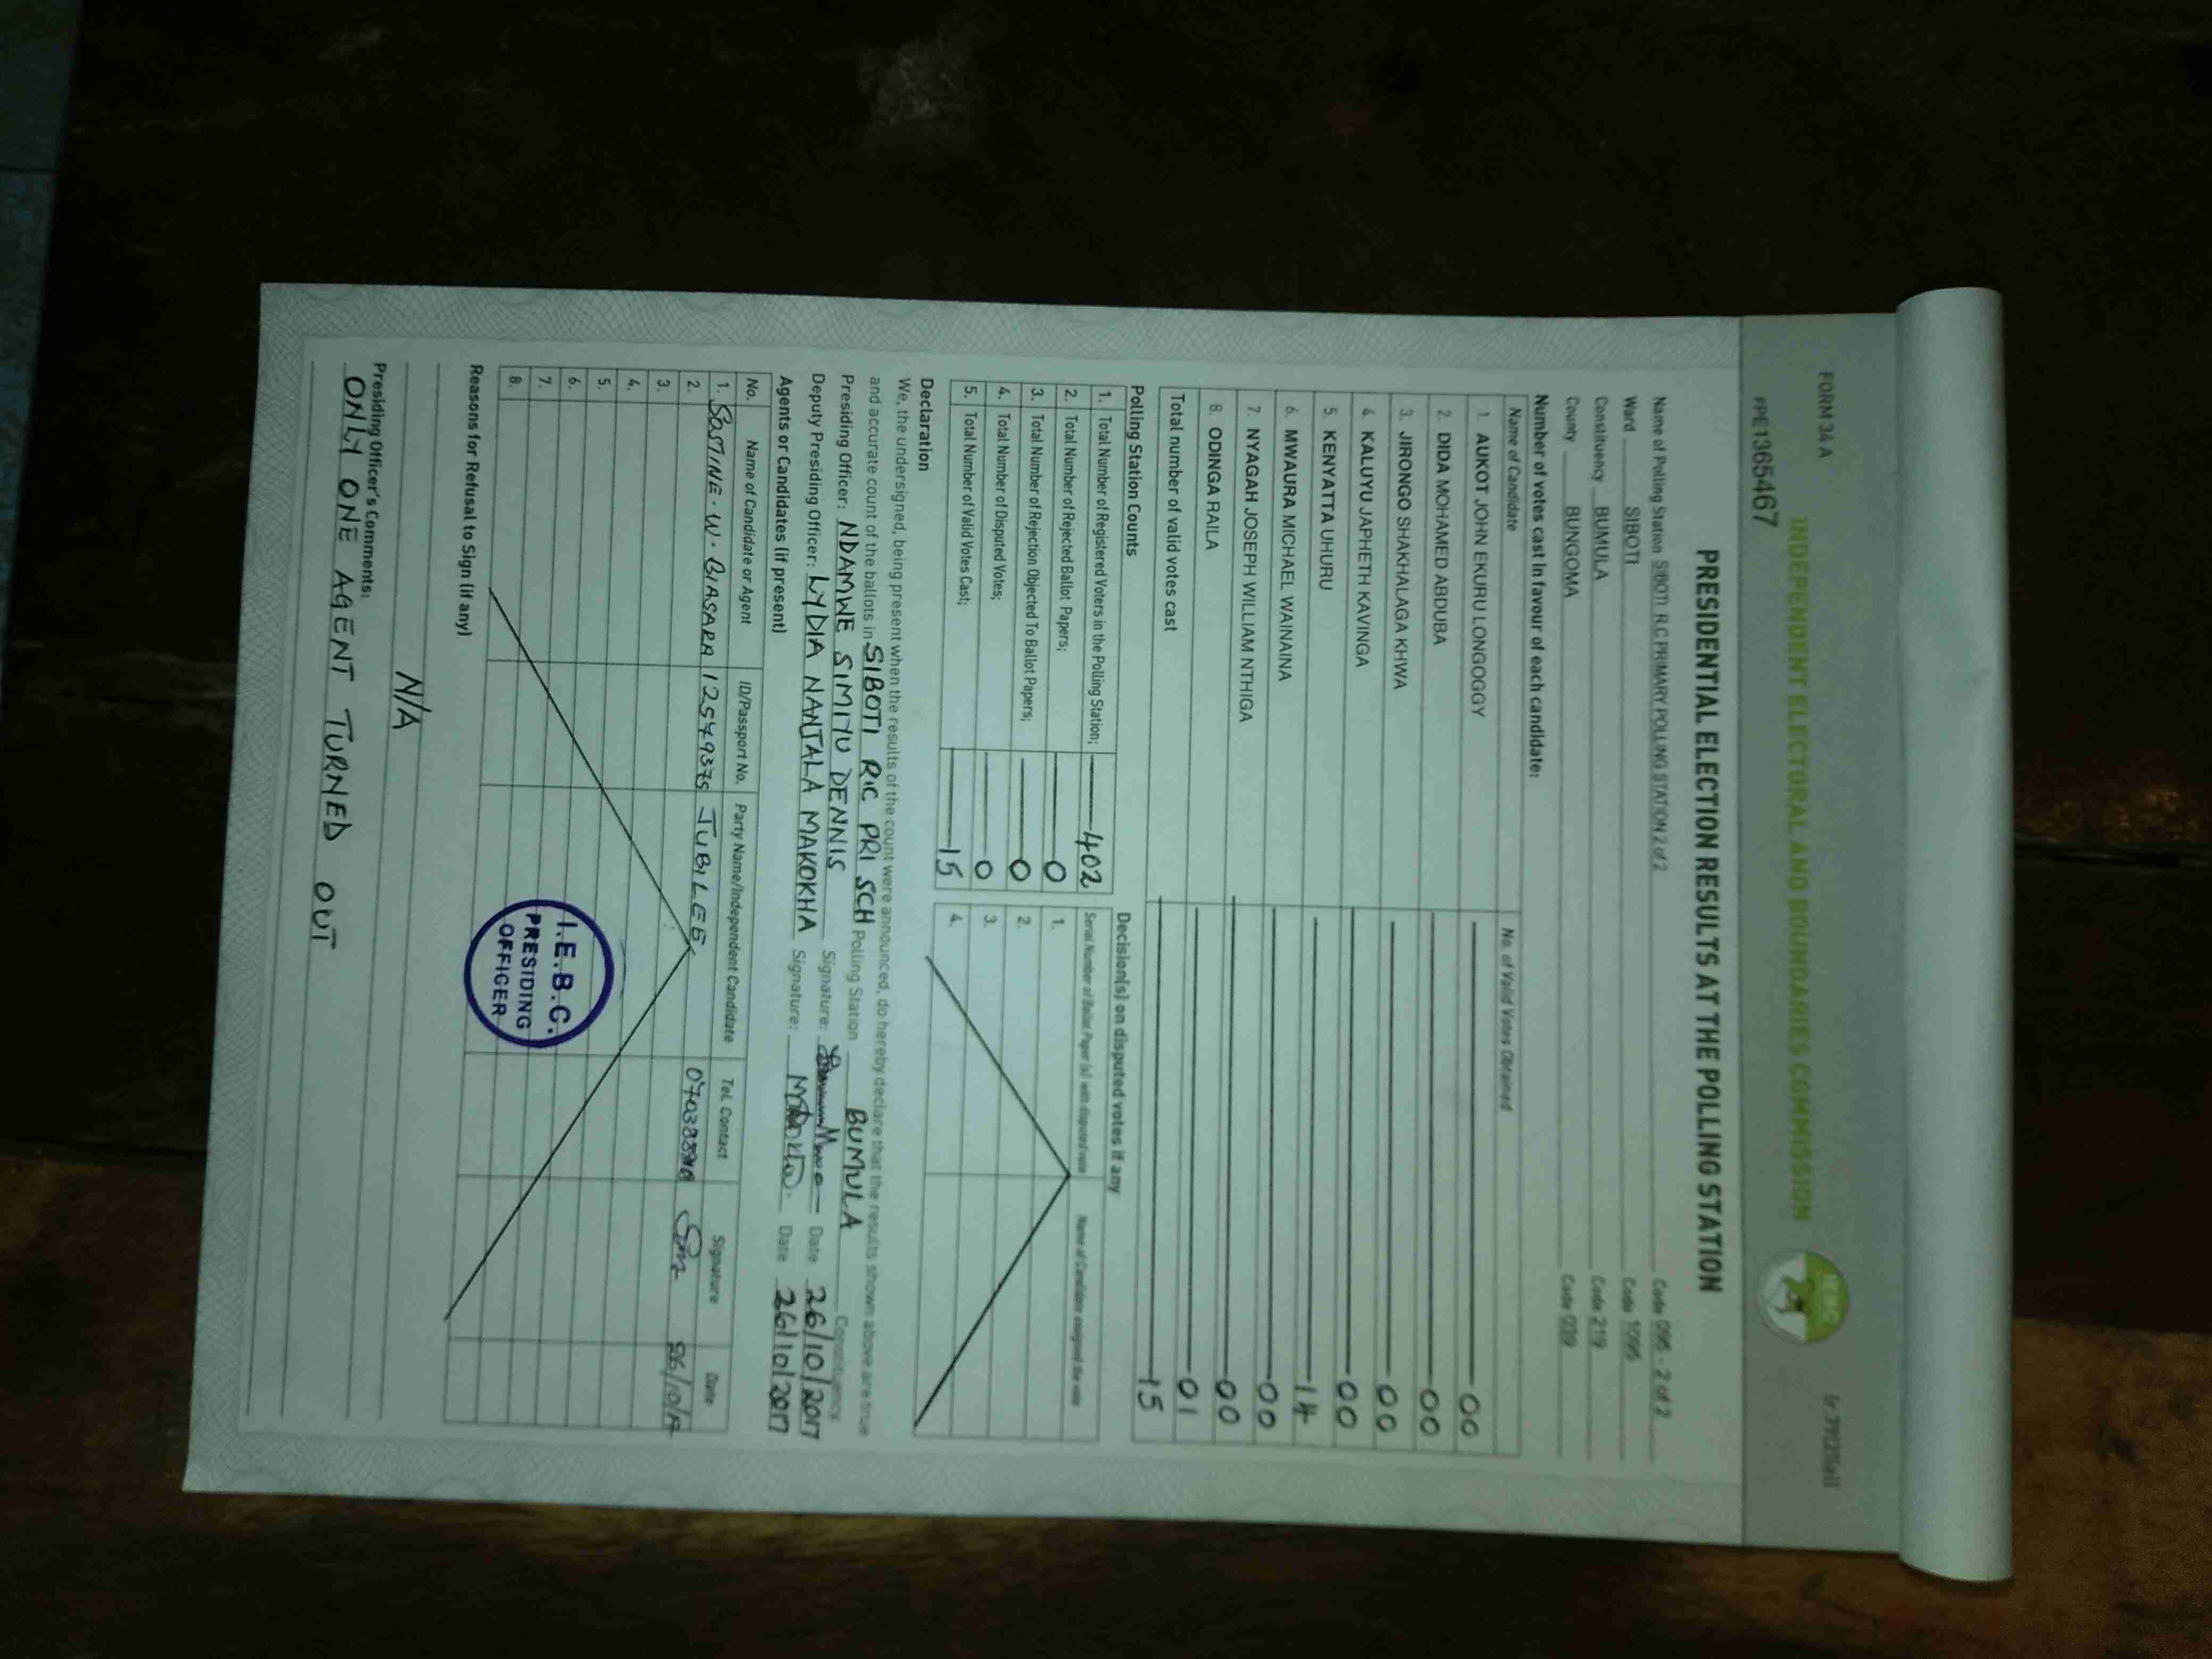 FORM 34 A
INDEPENDENT ELECTORAL AND BOUNDARIES COMMISSION
IEBC
PPE1365467
PRESIDENTIAL ELECTION RESULTS AT THE POLLING STATION
Name of Polling Station SIBOTI R C PRIMARY POLLING STATION 2 of 2 Code 095 - 2 of 2
Ward SIBOTI Code 1095
Constituency BUMULA Code 219
County BUNGOMA Code 039
Number of votes cast in favour of each candidate:
Name of Candidate No. of Valid Votes Obtained
1. AUKOT JOHN EKURU LONGOGGY 00
2. DIDA MOHAMED ABDUBA 00
3. JIRONGO SHAKHALAGA KHWA 00
4. KALUYU JAPHETH KAVINGA 00
5. KENYATTA UHURU 14
6. MWAURA MICHAEL WAINAINA 00
7. NYAGAH JOSEPH WILLIAM NTHIGA 00
8. ODINGA RAILA 01
Total number of valid votes cast 15
Polling Station Counts
1. Total Number of Registered Voters in the Polling Station; 402
2. Total Number of Rejected Ballot Papers; 0
3. Total Number of Rejection Objected To Ballot Papers; 0
4. Total Number of Disputed Votes; 0
5. Total Number of Valid Votes Cast; 15
Decision(s) on disputed votes if any
Serial Number of Ballot Paper (s) with disputed vote Name of Candidate assigned the vote
1.
2.
3.
4.
Declaration
We, the undersigned, being present when the results of the count were announced, do hereby declare that the results shown above are true
and accurate count of the ballots in SIBOTI R.C PRI SCH Polling Station BUMULA Constituency.
Presiding Officer: NDAMWE SIMIYU DENNIS Signature: Date 26/10/2017
Deputy Presiding Officer: LYDIA NANJALA MAKOKHA Signature: Date 26/10/2017
Agents or Candidates (if present)
No. Name of Candidate or Agent ID/Passport No. Party Name/Independent Candidate Tel. Contact Signature Date
1. SOSTINE. W. 12549375 JUBILEE 26/10/17
2.
3.
4.
5.
6.
7.
8.
I.E.B.C.
PRESIDING
OFFICER
Reasons for Refusal to Sign (if any)
N/A
Presiding Officer's Comments:
ONLY ONE AGENT TURNED OUT